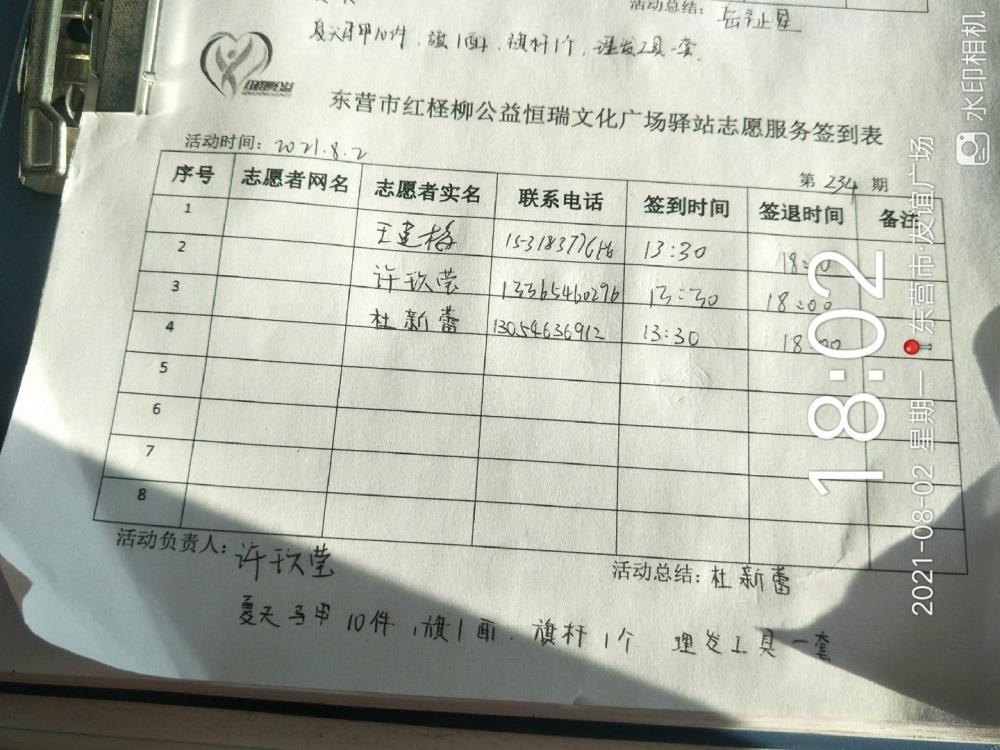 活动总结：
夏天马甲10件，旗1面，旗杆1个，理发工具一套
东营市红柽柳公益恒瑞文化广场驿站志愿服务签到表
活动时间：2021.8.2
第 234 期
序号 志愿者网名 志愿者实名 联系电话 签到时间 签退时间 备注
1 13:30
2 许玖莹 13365460296 13:30 18:00
3 杜新蕾 13054636912 13:30 18:00
4
5
6
7
8
活动负责人：许玖莹 活动总结：杜新蕾
夏天马甲10件，旗1面，旗杆1个 理发工具一套
水印相机
18:02
2021-08-02 星期一 东营市友谊广场